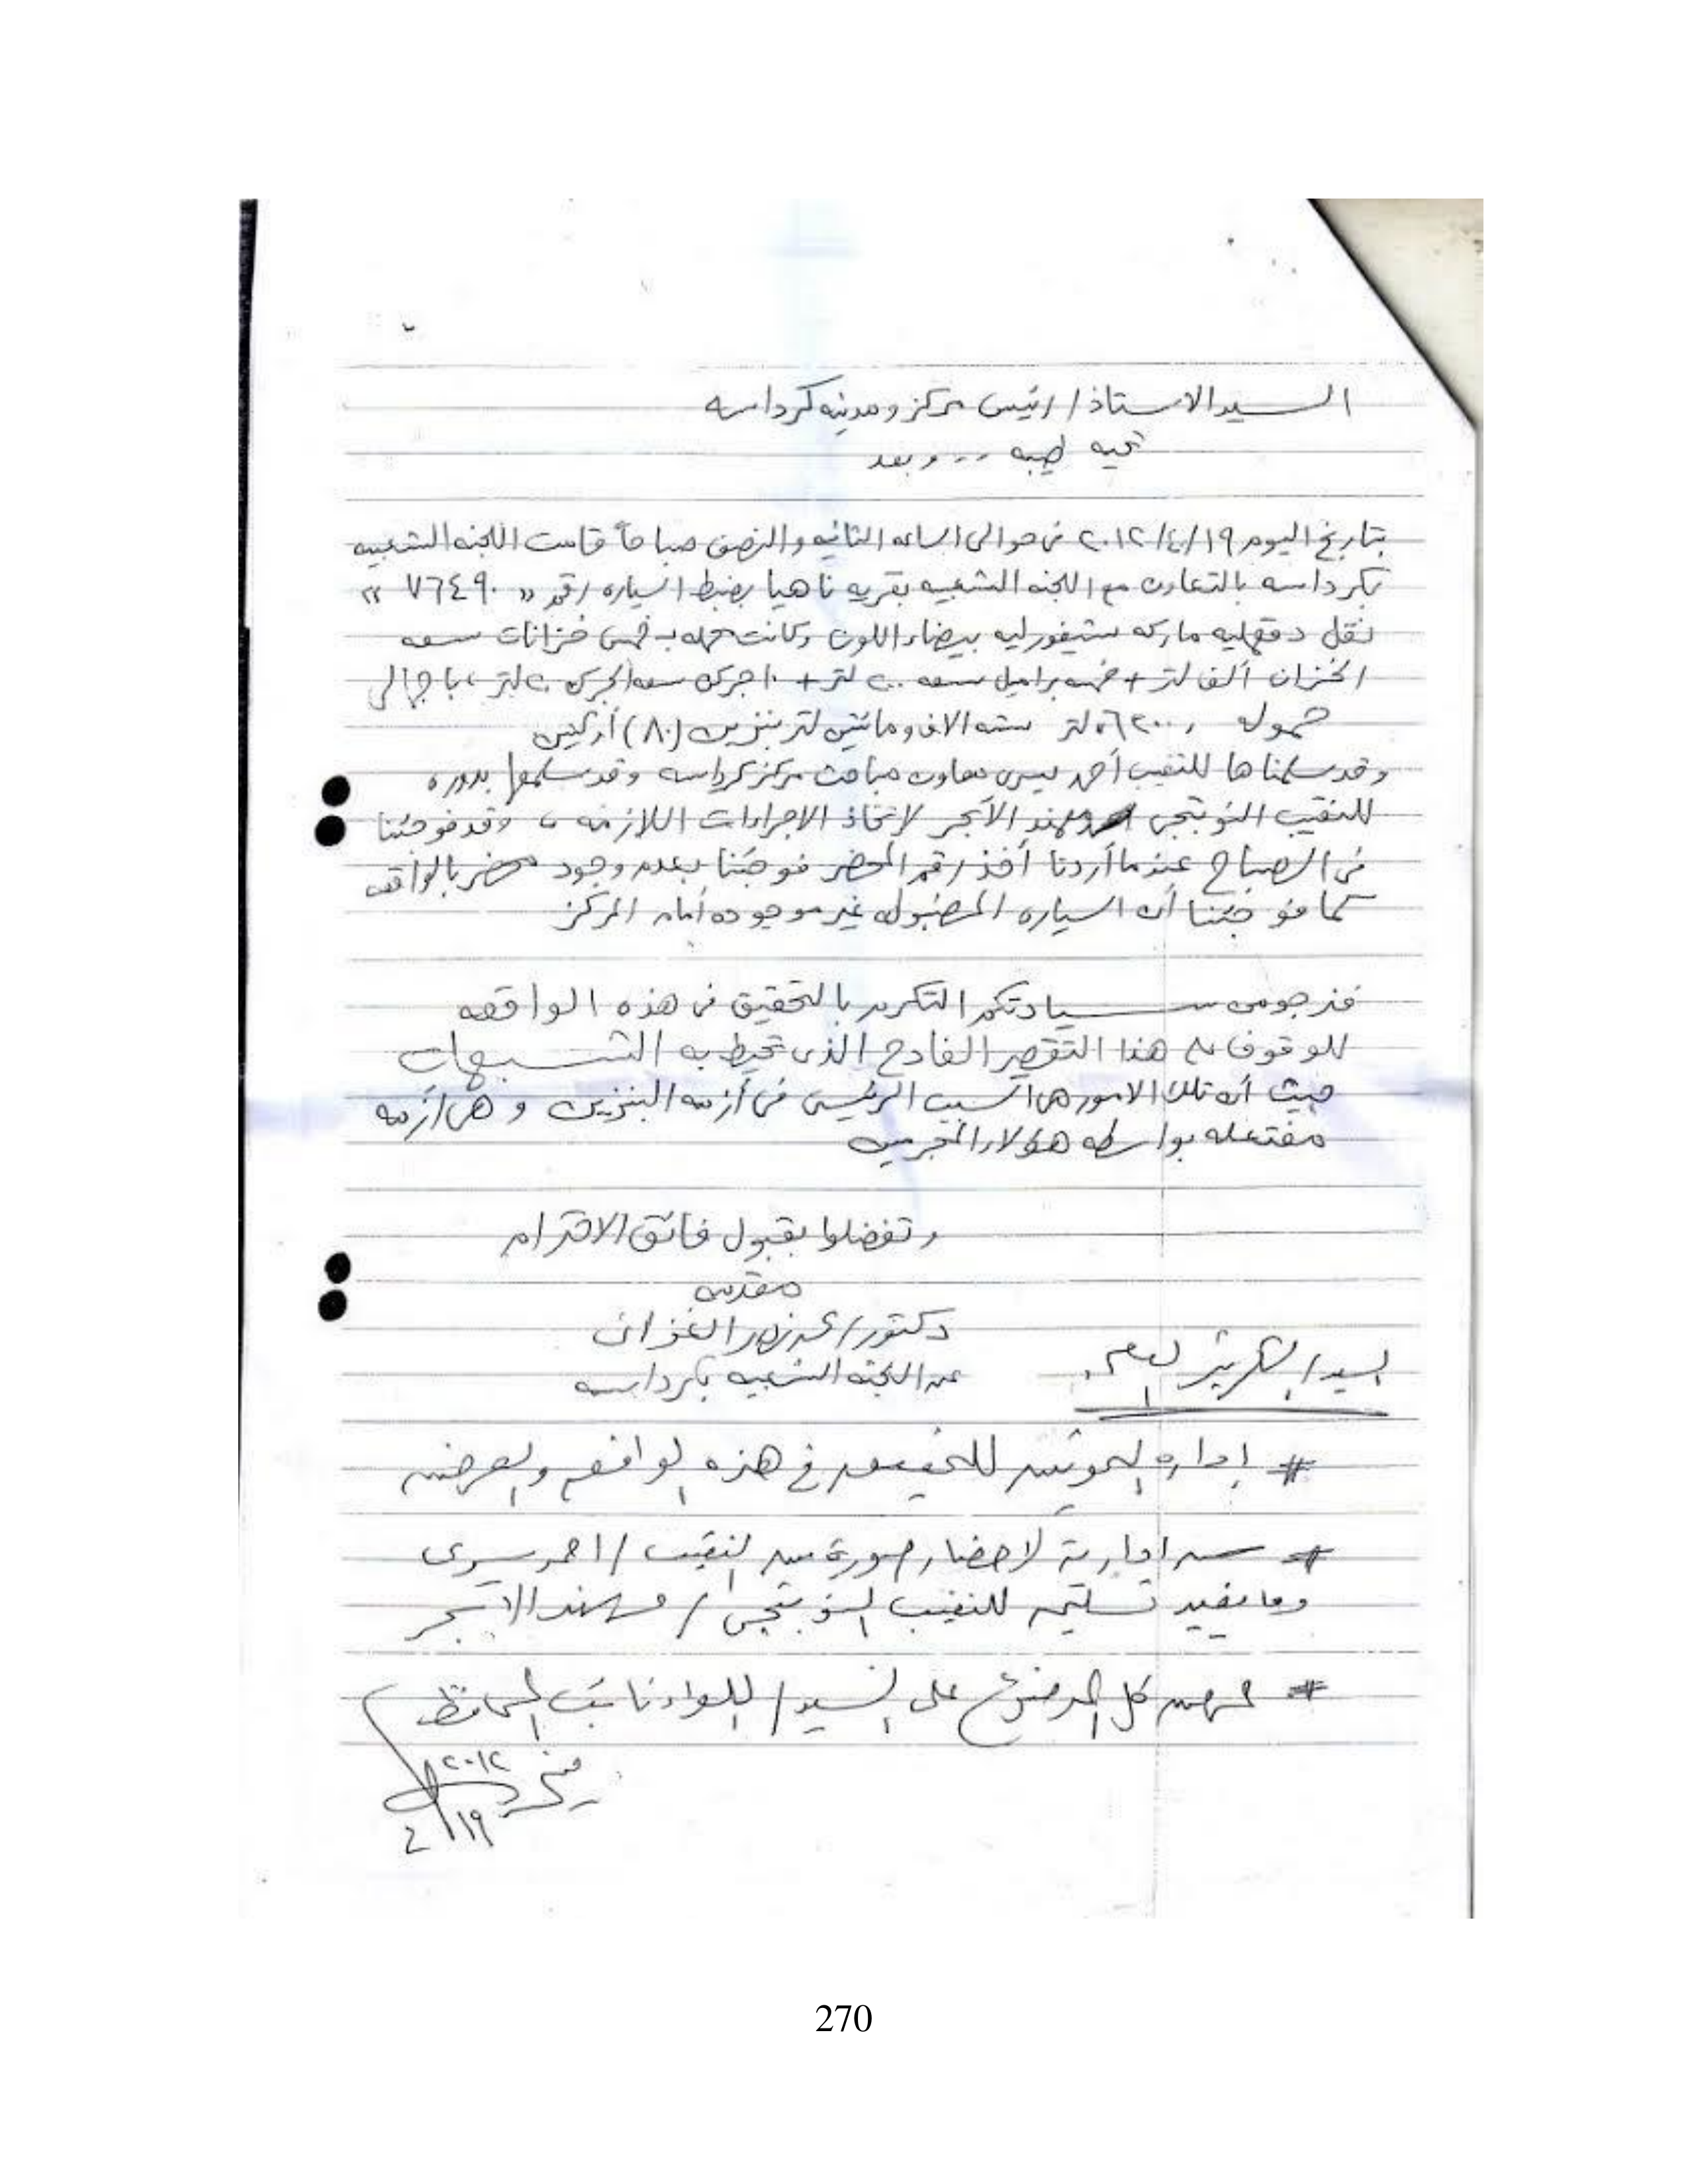 السيد الاستاذ / رئيس مركز ومدينه كرداسه
تحيه طيبه .. وبعد
بتاريخ اليوم ١٩/٤/٢٠١٢ فى حوالى الساعه الثانيه والنصف صباحاً قامت اللجنه الشعبيه
بكرداسه بالتعاون مع اللجنه الشعبيه بقريه ناهيا بضبط السياره رقم " ٧٦٤٩٠ "
نقل دقهليه ماركه شيفورليه بيضاء اللون وكانت محمله بـ خمس خزانات سعه
الخزان ألف لتر + خمسه براميل سعه ٢٠٠ لتر + ١٠ جركن سعه الجركن ٢٠ لتر ، باجمالى
حموله ٦٢٠٠ لتر سته الاف ومائتين لتر بنزين (٨٠) أوكتين
وقد سلمناها للنقيب أحمد يسرى معاون مباحث مركز كرداسه وقد سلمها بدوره
للنقيب النوبتجى مهند الأبجر لإتخاذ الاجراءات اللازمه ، وقد فوجئنا
فى الصباح عندما أردنا أخذ رقم المحضر فوجئنا بعدم وجود محضر بالواقعه
كما فوجئنا أن السياره المضبوطه غير موجوده أمام المركز
فنرجو من سيادتكم التكرم بالتحقيق فى هذه الواقعه
للوقوف على هذا التقصير الفادح الذى تحيط به الشبهات
حيث أن تلك الامور هى السبب الرئيسى فى أزمه البنزين وهى أزمه
مفتعله بواسطه هؤلاء المجرمين
وتفضلوا بقبول فائق الاحترام
مقدمه
دكتور / الغزلانى
عن اللجنه الشعبيه بكرداسه
السيد / السكرتير العام
# إداره التموين للتحقيق فى هذه الواقعه والعرض
# ادارية لاحضار صورة من النقيب / احمد يسرى
وما يفيد تسليمه للنقيب النوبتجى / مهند الابجر
# كل الموضوع على السيد / اللواء نائب المحافظ
٢٠١٢
١٩/٤
270